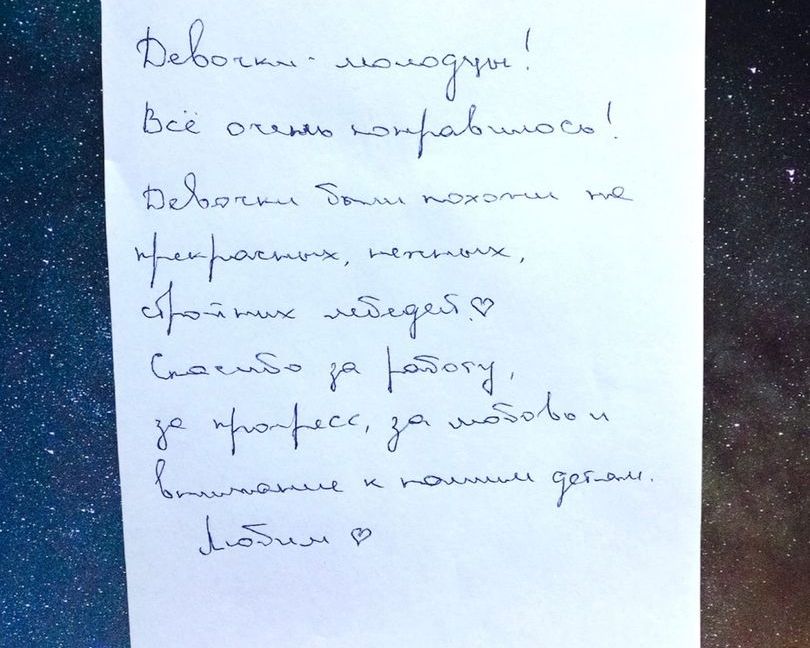 Девочки - молодцы!
Всё очень понравилось!
Девочки были похожи на
прекрасных, нежных,
стройных лебедей.♡
Спасибо за работу,
за прогресс, за любовь и
внимание к нашим детям.
Любим ♡